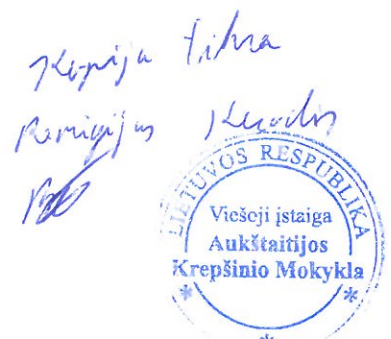 Kopija tikra
Remigijus
LIETUVOS RESPUBLIKA
Viešoji įstaiga
Aukštaitijos
Krepšinio Mokykla